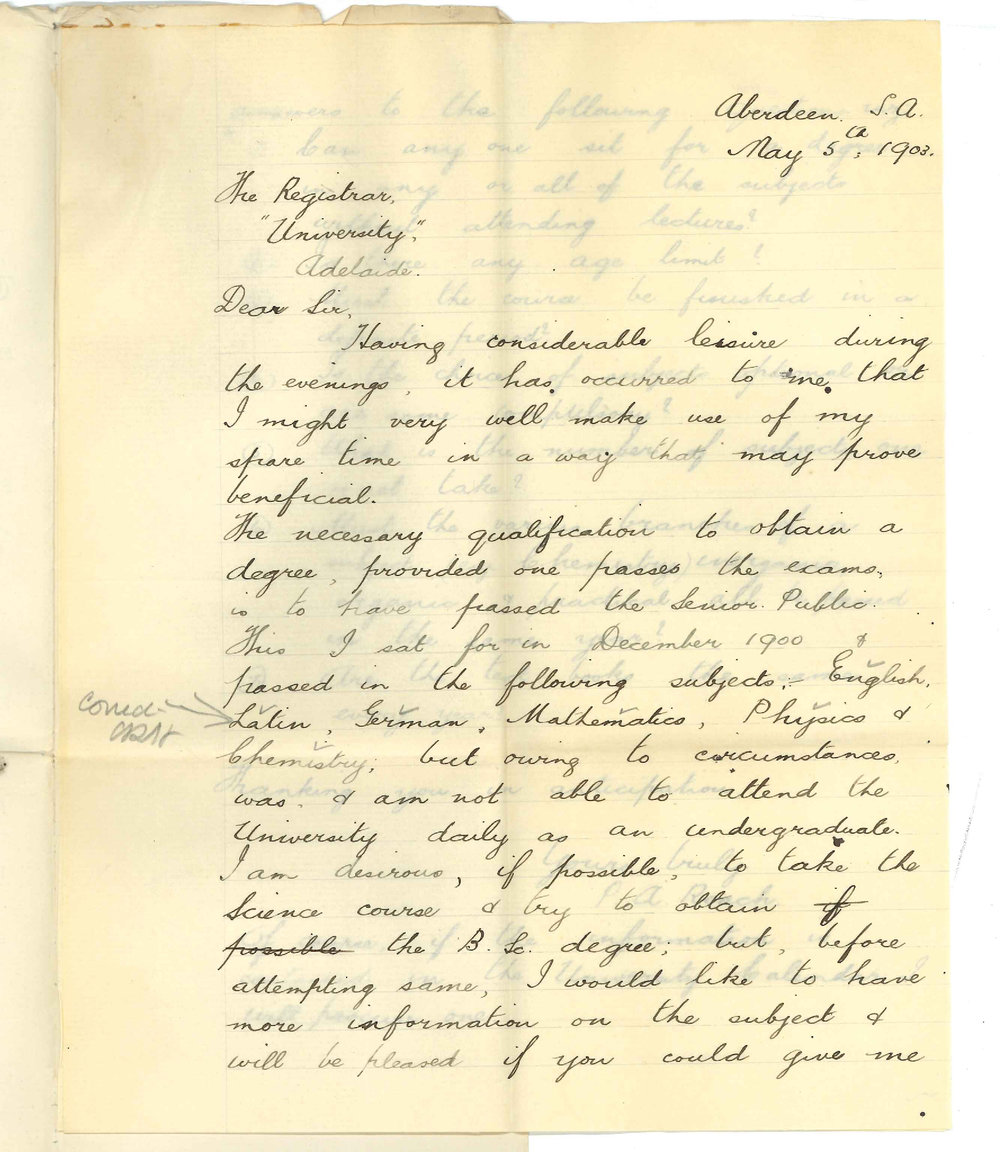 Aberdeen. S. A.
May 5th, 1903.
The Registrar,
"University",
Adelaide.
Dear Sir,
Having considerable leisure during
the evenings, it has occurred to me that
I might very well make use of my
spare time in a way that may prove
beneficial.
The necessary qualification to obtain a
degree, provided one passes the exams,
is to have passed the Senior Public.
This I sat for in December 1900 &
passed in the following subjects:- English,
Latin, German, Mathematics, Physics &
Chemistry; but owing to circumstances,
was & am not able to attend the
University daily as an undergraduate.
I am desirous, if possible, to take the
Science course & try to obtain if
possible the B. Sc. degree; but, before
attempting same, I would like to have
more information on the subject &
will be pleased if you could give me